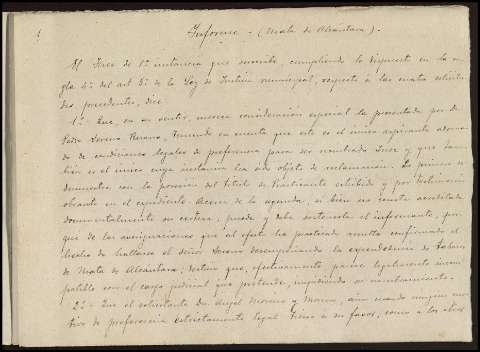 Informe - (Mata de Alcántara).
El Juez de 1ª instancia que suscribe, cumpliendo lo dispuesto en la re-
gla 4ª del art. 5º de la Ley de Justicia municipal, respecto á las cuatro solicitu-
des precedentes, dice
1º.- Que, en su sentir, merece consideración especial la presentada por Dn
Pedro Serrano, teniendo en cuenta que este es el único aspirante adorna-
do de condiciones legales de preferencia para ser nombrado Juez y que tam-
bién es el único cuya instancia ha sido objeto de reclamación. Lo primero se
demuestra con la posesión del título de Practicante exhibido y por testimonio
obrante en el expediente. Acerca de la segunda, si bien no consta acreditada
documentalmente su certeza, puede y debe sentarla el informante, por-
que de las averiguaciones que al efecto ha practicado resulta confirmado el
hecho de hallarse el señor Serrano desempeñando la expendeduría de Tabacos
de Mata de Alcántara; destino que, efectivamente, parece legalmente incom-
patible con el cargo judicial que pretende, impidiendo su nombramiento.
2º.- Que el solicitante Dn. Angel Moreno y Moreno, aún cuando ningún mo-
tivo de preferencia estrictamente legal tiene á su favor, como á los otros